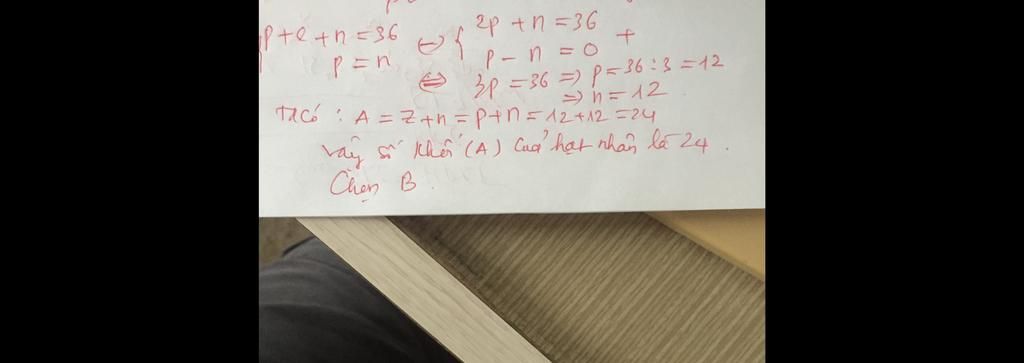 p+e+n=36 ⇔ { 2p+n=36
p=n p-n=0 +
⇔ 3p=36 => p=36:3=12
=> n=12
Ta có : A=Z+n=p+n=12+12=24
Vậy số khối (A) của hạt nhân là 24.
Chọn B.